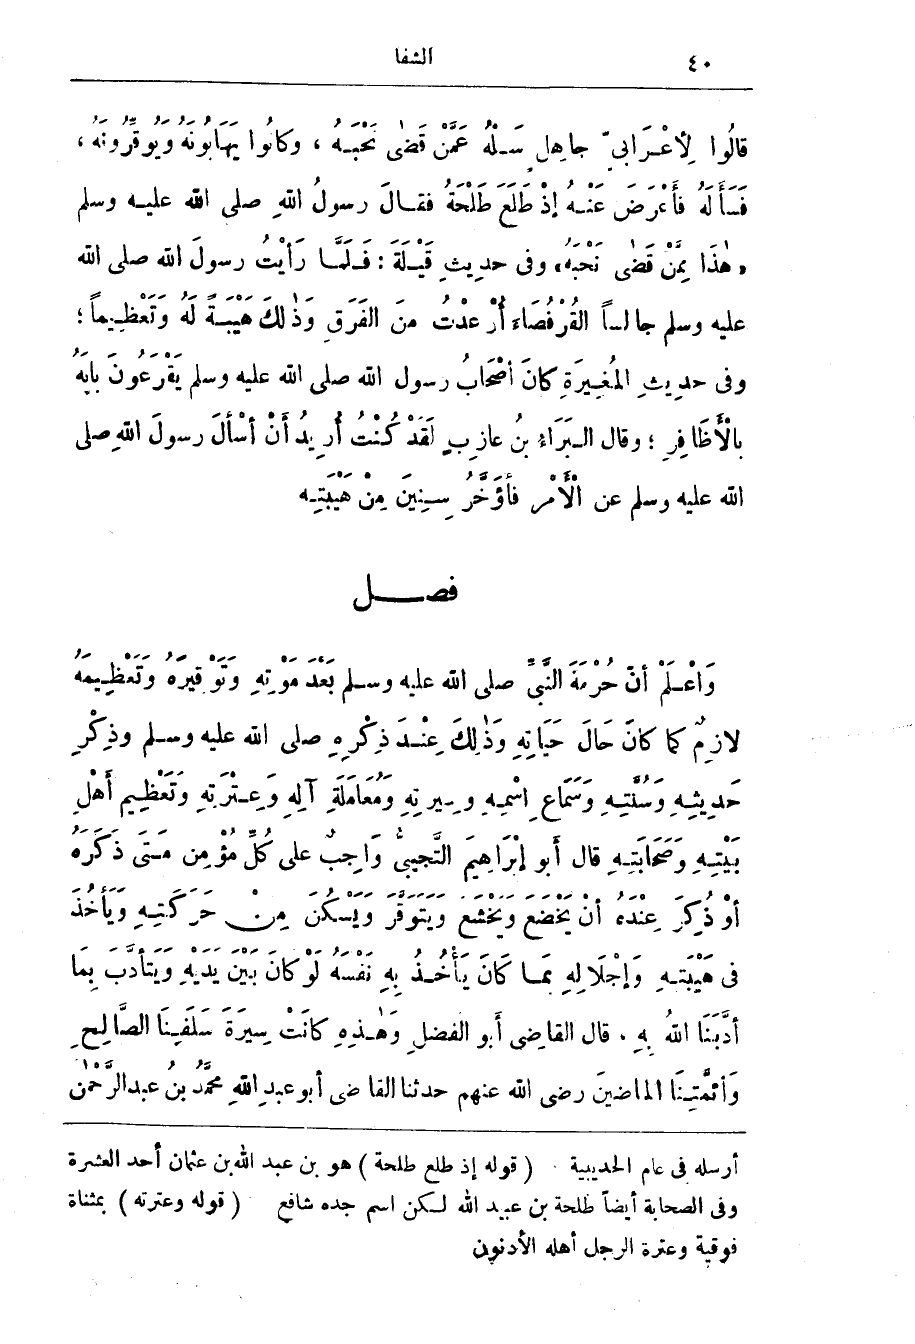 ٤٠ الشفا
قالُوا لِأَعْرَابِيّ جاهِلٍ سَلْهُ عَمَّنْ قَضٰى نَحْبَهُ ، وكانُوا يَهَابُونَهُ وَيُوَقِّرُونَهُ ،
فَسَأَلَهُ فأَعْرَضَ عَنْهُ إِذْ طَلَعَ طَلْحَةُ فقالَ رسولُ اللهِ صلى الله عليه وسلم
« هٰذَا مِمَّنْ قَضٰى نَحْبَهُ » وفى حديثِ قَيْلَةَ : فَلَمَّا رَأَيْتُ رسولَ الله صلى الله
عليه وسلم جالساً القُرْفُصَاءَ أُرْعِدْتُ منَ الفَرَقِ وَذٰلِكَ هَيْبَةً لَهُ وَتَعْظِيماً ؛
وفى حديثِ المُغِيرَةِ كانَ أَصْحَابُ رسول الله صلى الله عليه وسلم يَقْرَعُونَ بابَهُ
بالْأَظَافِرِ ؛ وقال البَرَاءُ بنُ عازِبٍ لَقَدْ كُنْتُ أُرِيدُ أَنْ أَسْأَلَ رسولَ اللهِ صلى
الله عليه وسلم عن الْأَمْرِ فأُؤَخِّرُ سِنِينَ مِنْ هَيْبَتِهِ
فصل
وَاعْلَمْ أنّ حُرْمَةَ النَّبِيِّ صلى الله عليه وسلم بَعْدَ مَوْتِهِ وَتَوْقِيرَهُ وَتَعْظِيمَهُ
لازِمٌ كما كانَ حَالَ حَيَاتِهِ وَذٰلِكَ عِنْدَ ذِكْرِهِ صلى الله عليه وسلم وذِكْرِ
حَدِيثِهِ وَسُنَّتِهِ وَسَمَاعِ اسْمِهِ وسِيرَتِهِ وَمُعَامَلَةِ آلِهِ وَعِتْرَتِهِ وَتَعْظِيمِ أَهْلِ
بَيْتِهِ وَصَحَابَتِهِ قال أَبو إِبْرَاهِيمَ التُّجِيبِيُّ وَاجِبٌ على كُلِّ مُؤْمِنٍ مَتَى ذَكَرَهُ
أَوْ ذُكِرَ عِنْدَهُ أَنْ يَخْضَعَ وَيَخْشَعَ وَيَتَوَقَّرَ وَيَسْكُنَ مِنْ حَرَكَتِهِ وَيَأْخُذَ
فى هَيْبَتِهِ وَإِجْلَالِهِ بِمَا كَانَ يَأْخُذُ بِهِ نَفْسَهُ لَوْ كَانَ بَيْنَ يَدَيْهِ وَيَتَأَدَّبَ بِمَا
أَدَّبَنَا اللهُ بِهِ . قال القاضِى أَبو الفضلِ وَهٰذِهِ كانَتْ سِيرَةَ سَلَفِنَا الصَّالِحِ
وَأَئِمَّتِنَا الماضِينَ رضى الله عنهم حدثنا القاضى أبو عبدِ اللهِ مُحَمَّدُ بنُ عبدِ الرَّحْمٰنِ
أرسله فى عام الحديبية . ( قوله إذ طلع طلحة ) هو بن عبد الله بن عثمان أحد العشرة
وفى الصحابة أيضاً طلحة بن عبيد الله لكن اسم جده شافع ( قوله وعترته ) بمثناة
فوقية وعترة الرجل أهله الأدنون